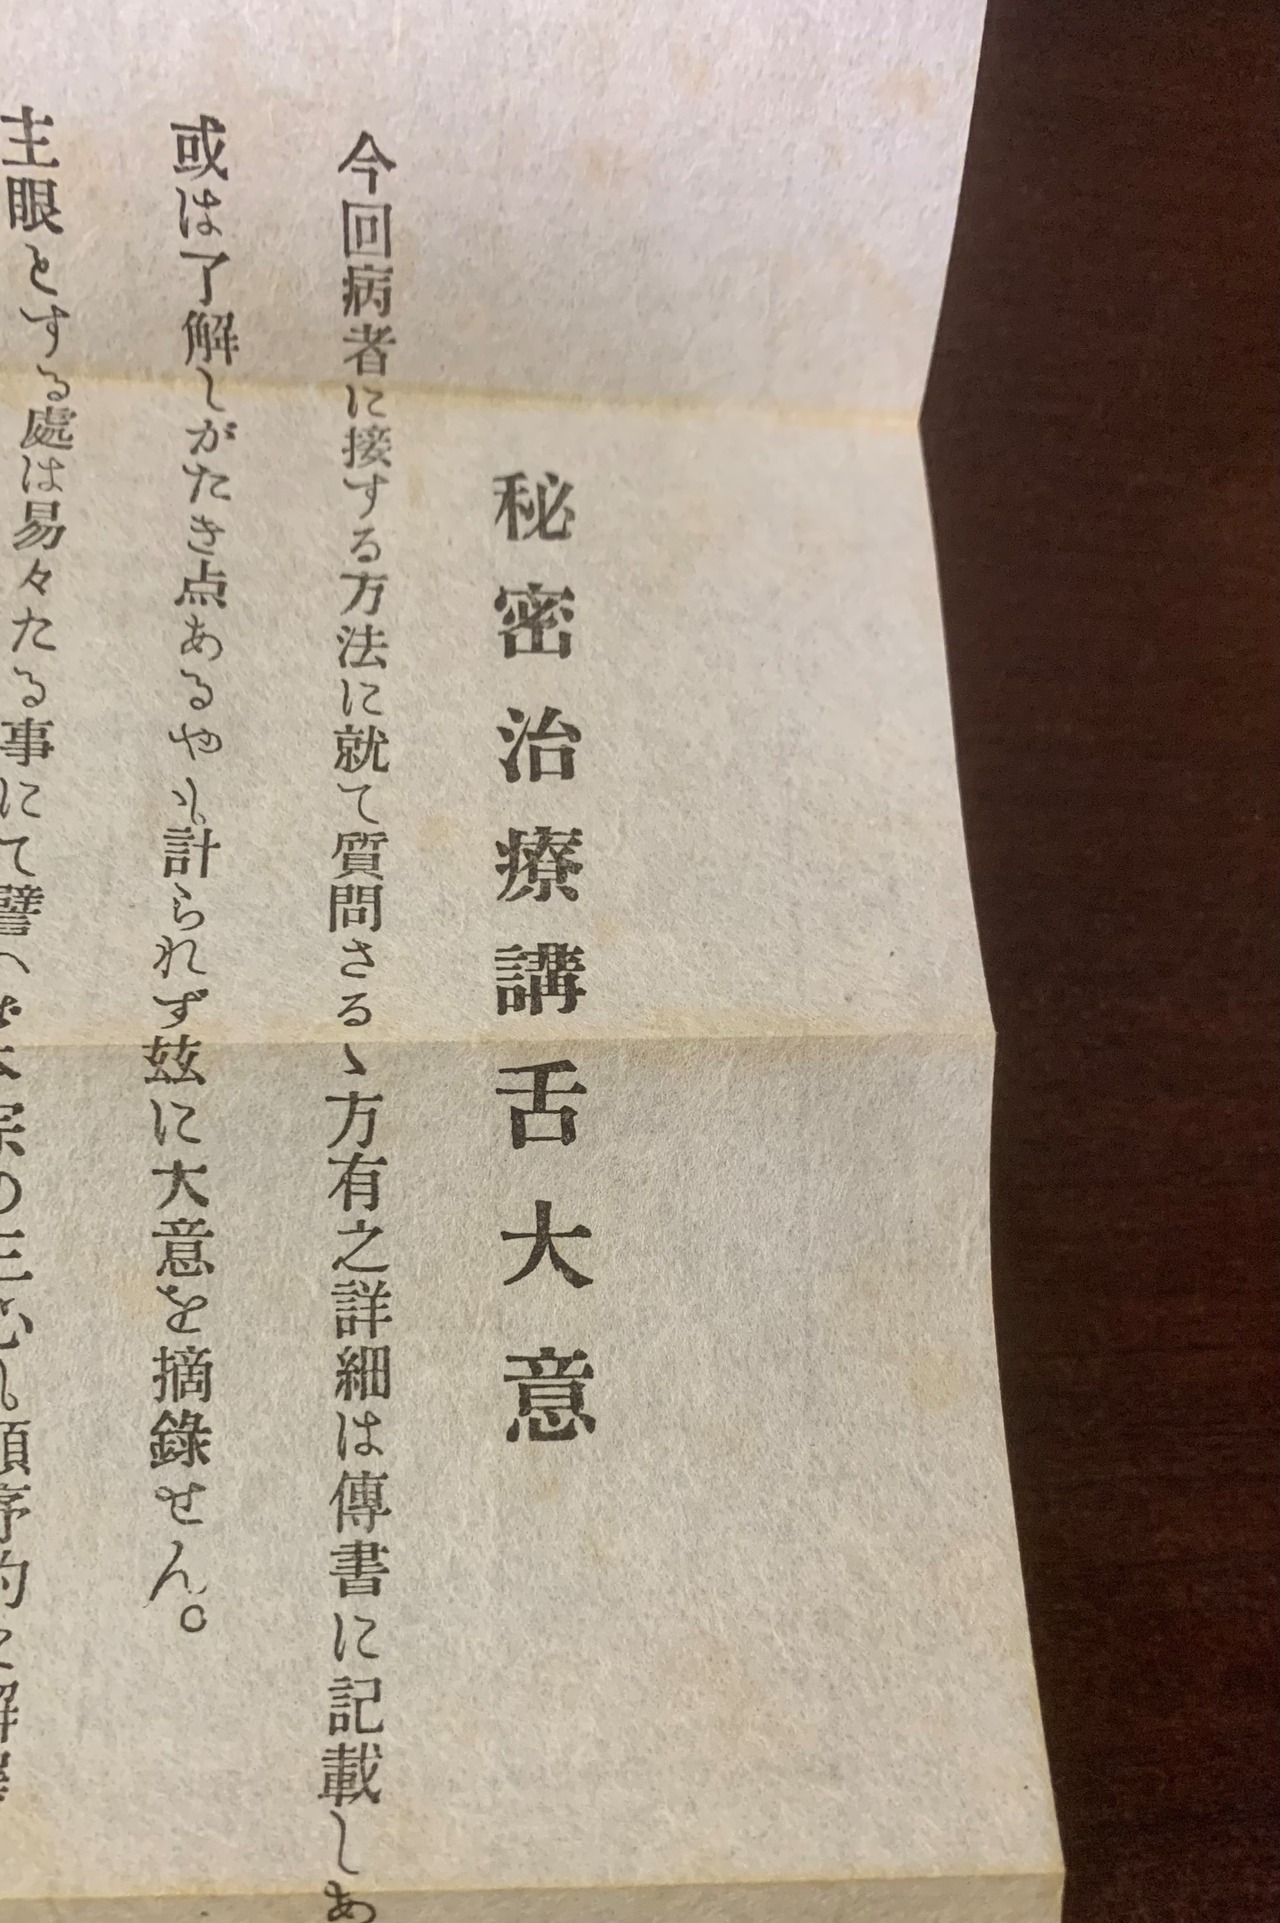 秘密治療講舌大意
今回病者に接する方法に就て質問さるゝ方有之詳細は傳書に記載しあ
或は了解しがたき点あるやも計られず玆に大意を摘錄せん。
主眼とする處は易々たる事にて譬へば本宗の三心も順序的に解釋